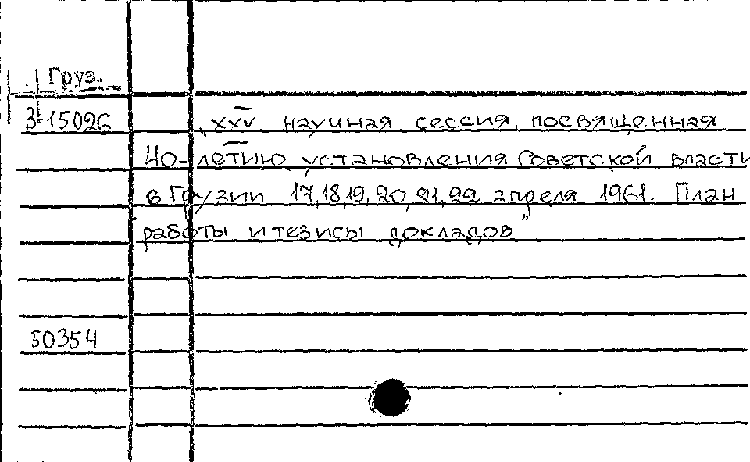 Груз.
3-15026
„XXV научная сессия, посвященная
40-летию установления Советской власти
в Грузии 17,18,19, 20, 21, 22 апреля 1961. План
работы и тезисы докладов"
50354